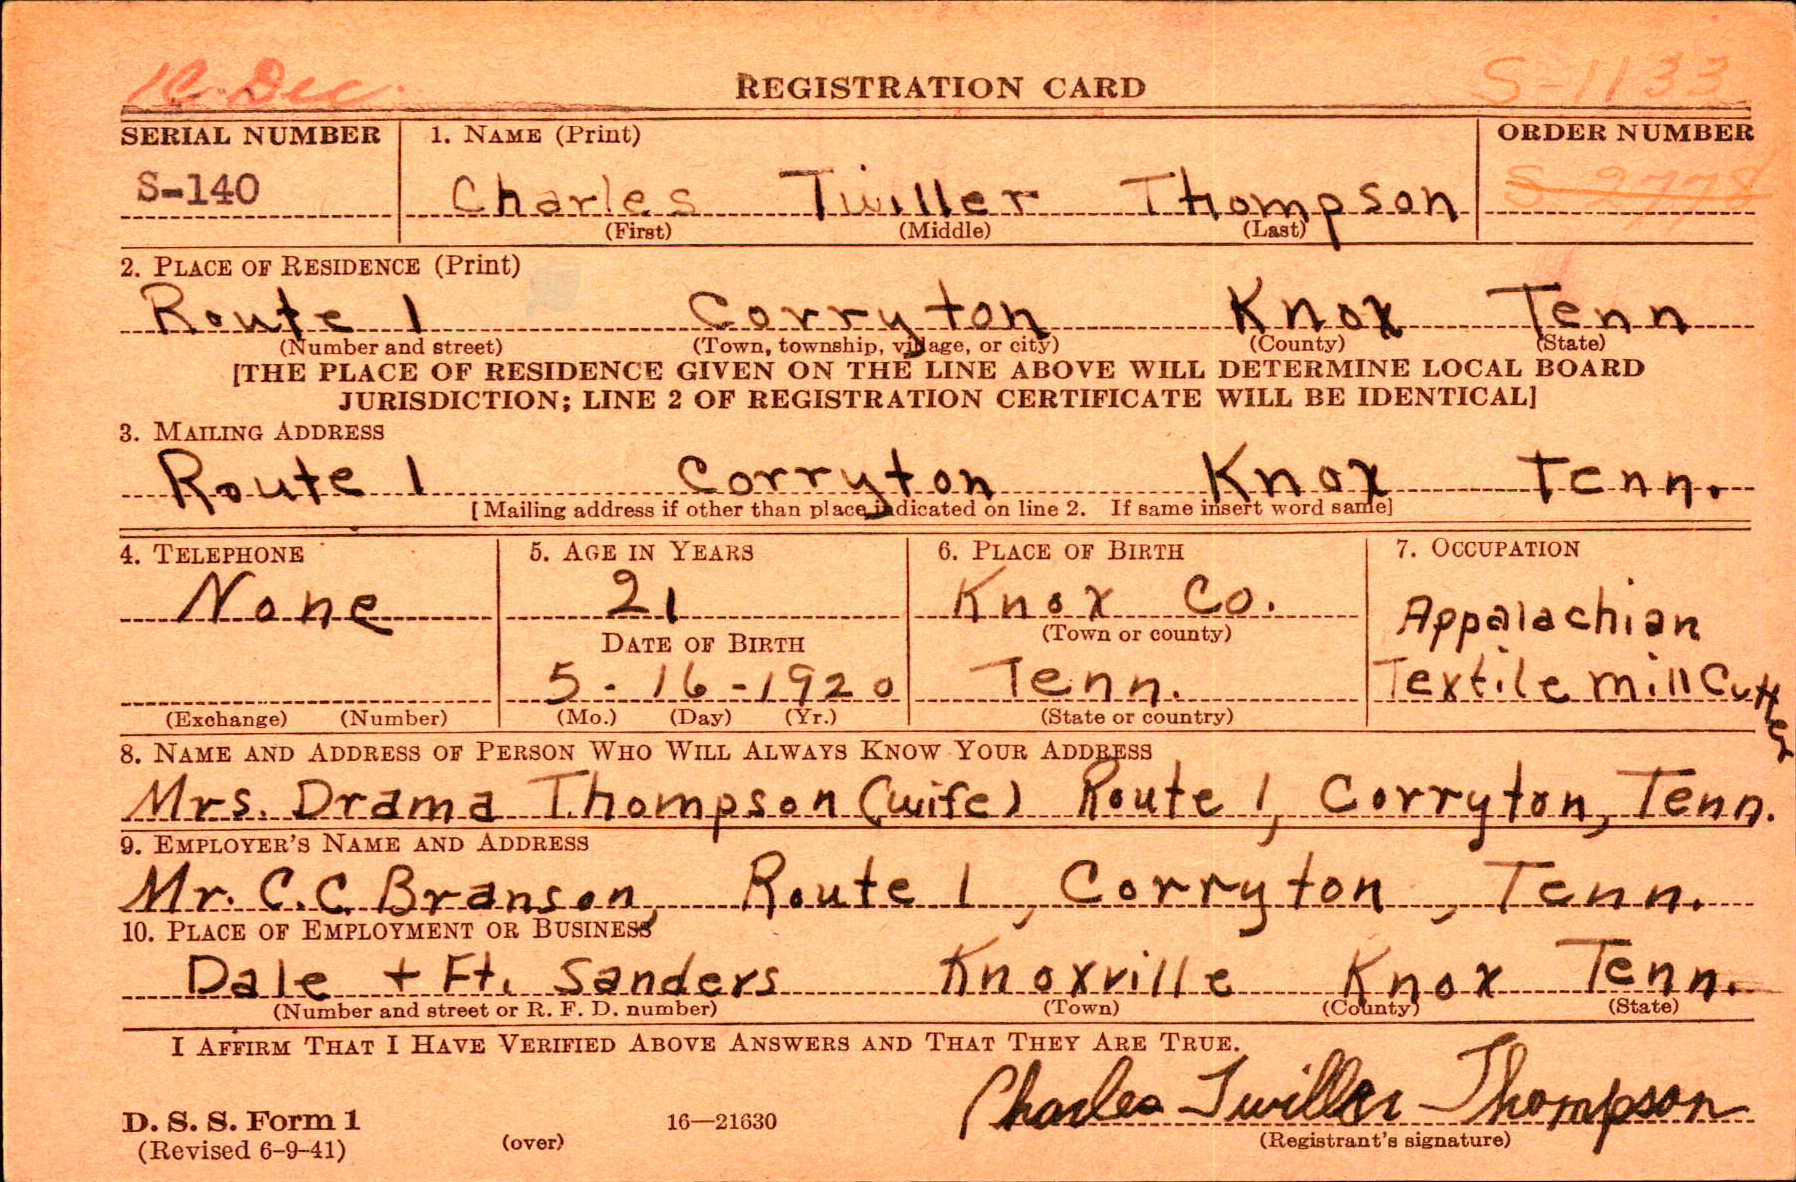 Dec.
REGISTRATION CARD
S-1133
SERIAL NUMBER
1. NAME (Print)
ORDER NUMBER
S-140
Charles Twiller Thompson
S 2778
(First) (Middle) (Last)
2. PLACE OF RESIDENCE (Print)
Route 1 Corryton Knox Tenn
(Number and street) (Town, township, village, or city) (County) (State)
[THE PLACE OF RESIDENCE GIVEN ON THE LINE ABOVE WILL DETERMINE LOCAL BOARD
JURISDICTION; LINE 2 OF REGISTRATION CERTIFICATE WILL BE IDENTICAL]
3. MAILING ADDRESS
Route 1 Corryton Knox Tenn.
[Mailing address if other than place indicated on line 2. If same insert word same]
4. TELEPHONE
None
(Exchange) (Number)
5. AGE IN YEARS
21
DATE OF BIRTH
5-16-1920
(Mo.) (Day) (Yr.)
6. PLACE OF BIRTH
Knox Co.
(Town or county)
Tenn.
(State or country)
7. OCCUPATION
Appalachian
Textile mill Cutter
8. NAME AND ADDRESS OF PERSON WHO WILL ALWAYS KNOW YOUR ADDRESS
Mrs. Drama Thompson (wife) Route 1, Corryton, Tenn.
9. EMPLOYER'S NAME AND ADDRESS
Mr. C.C. Branson, Route 1, Corryton, Tenn.
10. PLACE OF EMPLOYMENT OR BUSINESS
Dale + Ft. Sanders Knoxville Knox Tenn.
(Number and street or R. F. D. number) (Town) (County) (State)
I AFFIRM THAT I HAVE VERIFIED ABOVE ANSWERS AND THAT THEY ARE TRUE.
Charles Twiller Thompson
(Registrant's signature)
D. S. S. Form 1
(Revised 6-9-41)
(over)
16—21630